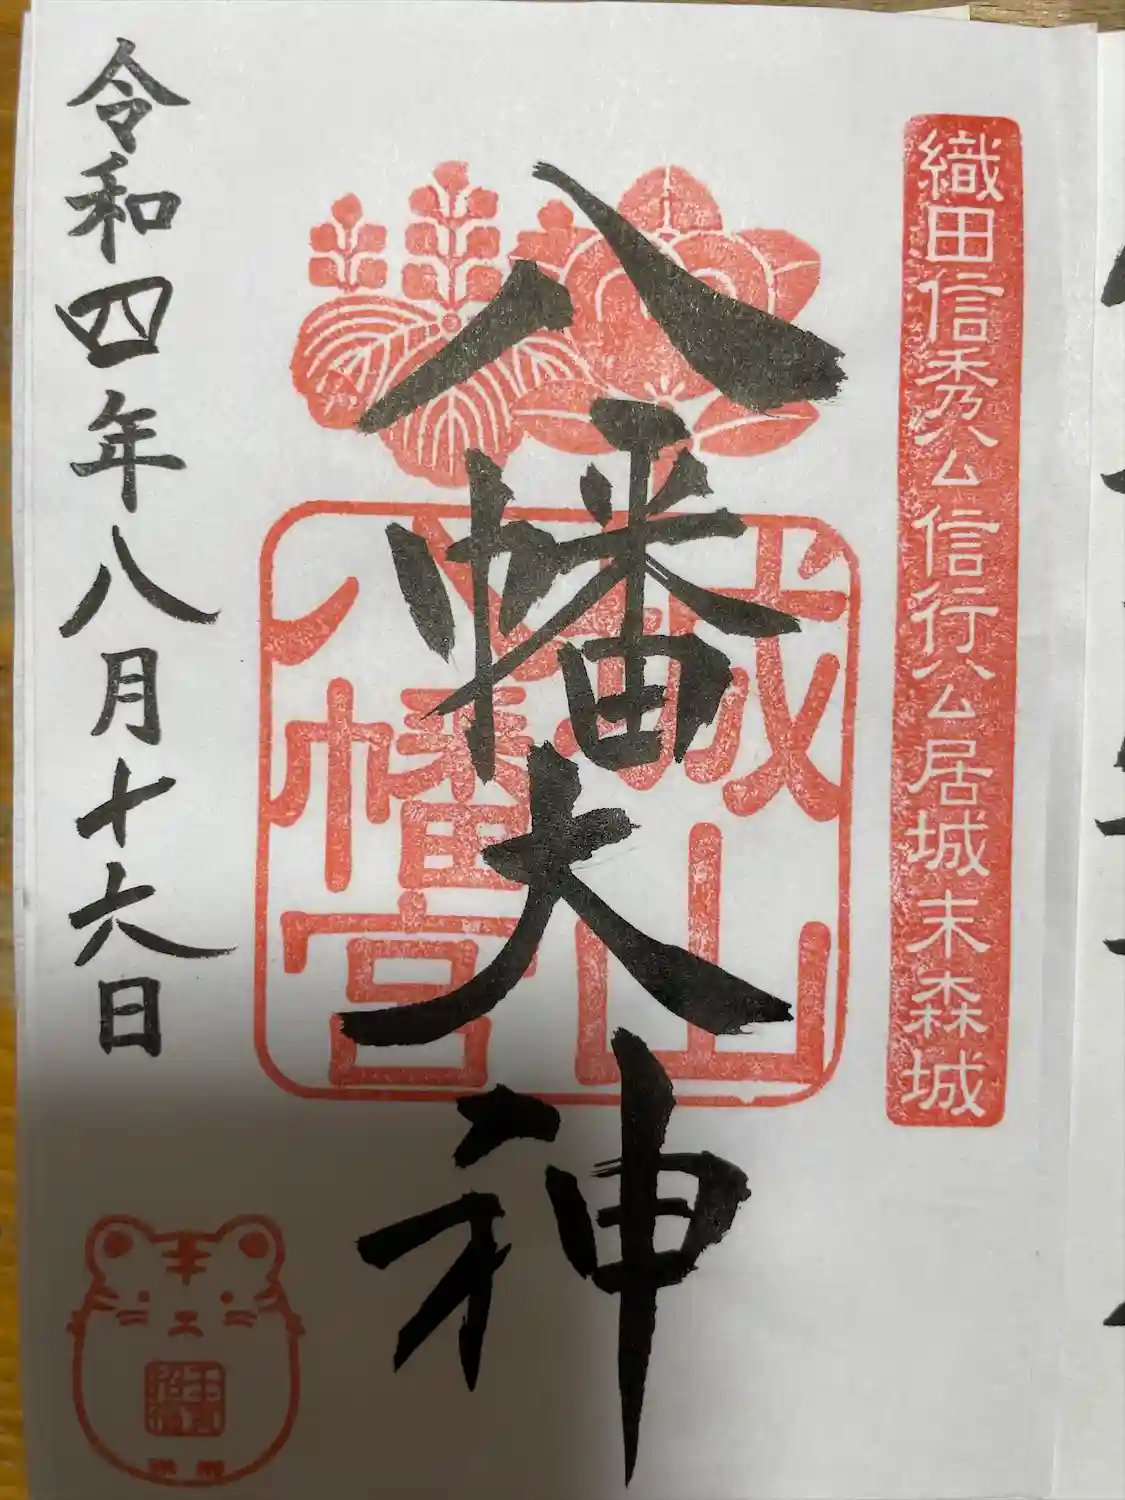 織田信秀公公信行公居城末森城
八幡大神
城山
八幡宮
令和四年八月十六日